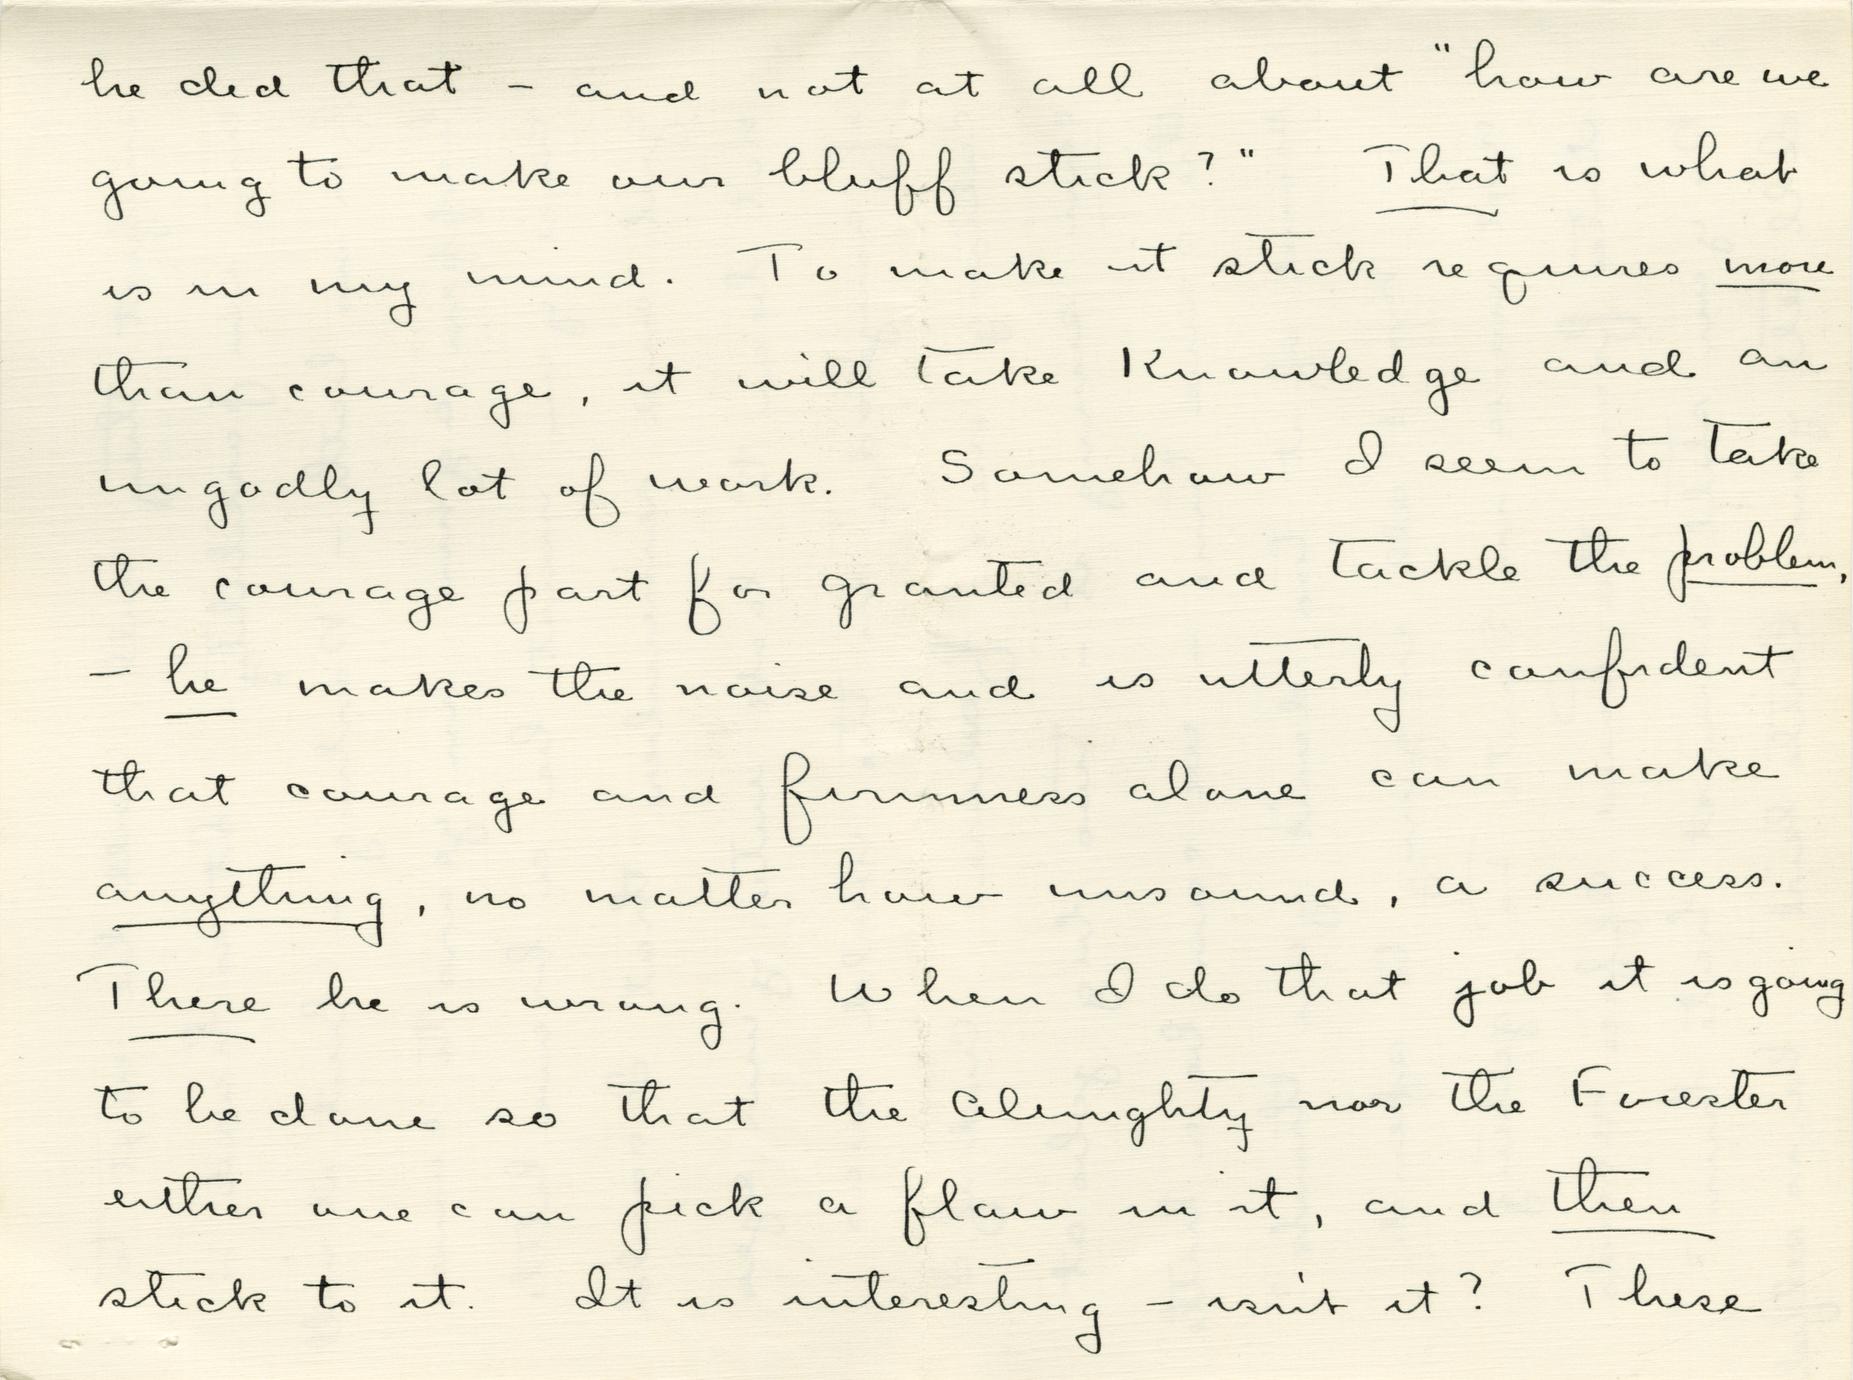 he did that - and not at all about "how are we
going to make our bluff stick?" That is what
is in my mind. To make it stick requires more
than courage, it will take knowledge and an
ungodly lot of work. Somehow I seem to take
the courage part for granted and tackle the problem,
- he makes the noise and is utterly confident
that courage and firmness alone can make
anything, no matter how unsound, a success.
There he is wrong. When I do that job it is going
to be done so that the Almighty nor the Forester
either one can pick a flaw in it, and then
stick to it. It is interesting - isn't it? These